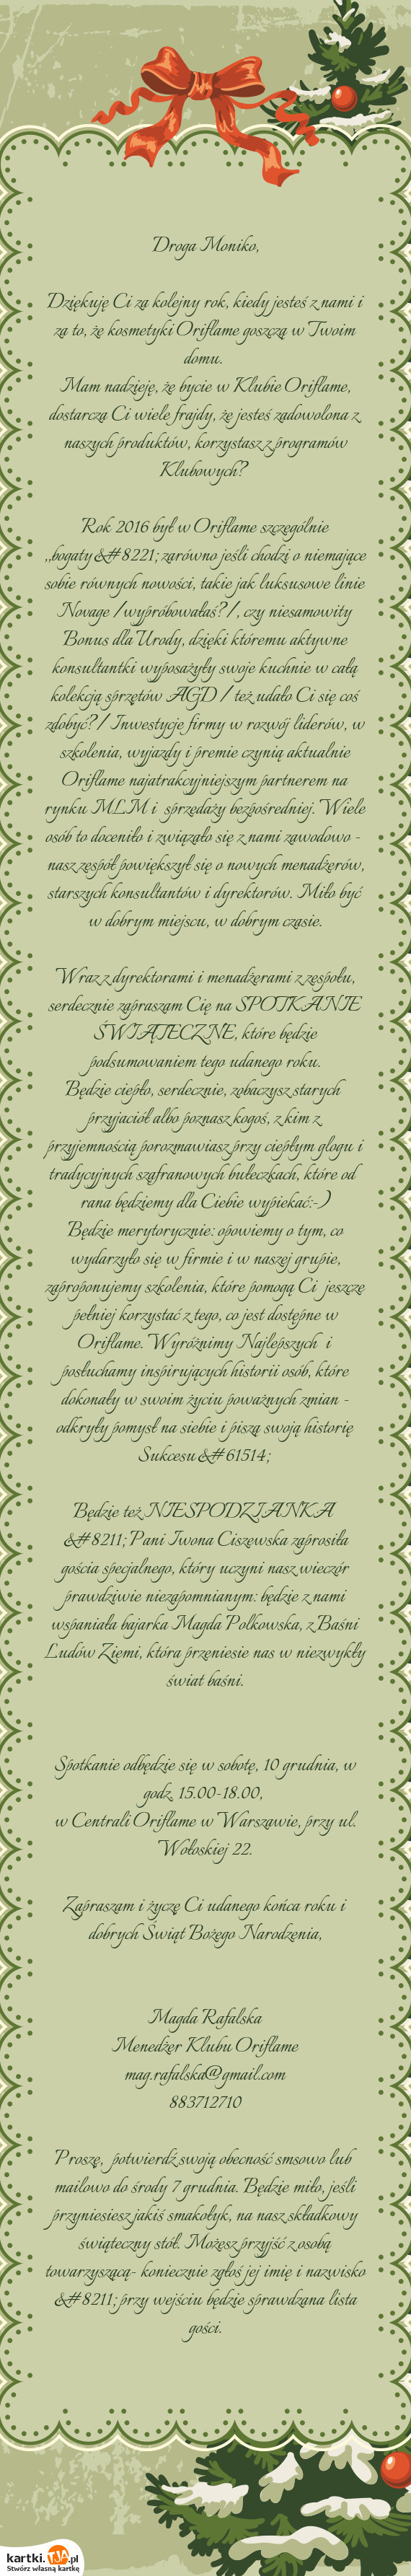 Droga Moniko,
Dziękuję Ci za kolejny rok, kiedy jesteś z nami i
za to, że kosmetyki Oriflame goszczą w Twoim
domu.
Mam nadzieję, że bycie w Klubie Oriflame,
dostarcza Ci wiele frajdy, że jesteś zadowolona z
naszych produktów, korzystasz z programów
Klubowych?
Rok 2016 był w Oriflame szczególnie
,,bogaty&#8221; zarówno jeśli chodzi o niemające
sobie równych nowości, takie jak luksusowe linie
Novage /wypróbowałaś?/, czy niesamowity
Bonus dla Urody, dzięki któremu aktywne
konsultantki wyposażyły swoje kuchnie w całą
kolekcją sprzętów AGD / też udało Ci się coś
zdobyć?/ Inwestycje firmy w rozwój liderów, w
szkolenia, wyjazdy i premie czynią aktualnie
Oriflame najatrakcyjniejszym partnerem na
rynku MLM i  sprzedaży bezpośredniej. Wiele
osób to doceniło i związało się z nami zawodowo -
nasz zespół powiększył się o nowych menadżerów,
starszych konsultantów i dyrektorów. Miło być
w dobrym miejscu, w dobrym czasie.
Wraz z dyrektorami i menadżerami z zespołu,
serdecznie zapraszam Cię na SPOTKANIE
ŚWIĄTECZNE, które będzie
podsumowaniem tego udanego roku.
Będzie ciepło, serdecznie, zobaczysz starych
przyjaciół albo poznasz kogoś, z kim z
przyjemnością porozmawiasz przy ciepłym glogu i
tradycyjnych szafranowych bułeczkach, które od
rana będziemy dla Ciebie wypiekać:-)
Będzie merytorycznie: opowiemy o tym, co
wydarzyło się w firmie i w naszej grupie,
zaproponujemy szkolenia, które pomogą Ci  jeszcze
pełniej korzystać z tego, co jest dostępne w
Oriflame. Wyróżnimy Najlepszych  i
posłuchamy inspirujących historii osób, które
dokonały w swoim życiu poważnych zmian -
odkryły pomysł na siebie i piszą swoją historię
Sukcesu &#61514;
Będzie też NIESPODZIANKA
&#8211; Pani Iwona Ciszewska zaprosiła
gościa specjalnego, który uczyni nasz wieczór
prawdziwie niezapomnianym: będzie z nami
wspaniała bajarka Magda Polkowska, z Baśni
Ludów Ziemi, która przeniesie nas w niezwykły
świat baśni.
Spotkanie odbędzie się w sobotę, 10 grudnia, w
godz. 15.00-18.00,
w Centrali Oriflame w Warszawie, przy ul.
Wołoskiej 22.
Zapraszam i życzę Ci udanego końca roku i
dobrych Świąt Bożego Narodzenia,
Magda Rafalska
Menedżer Klubu Oriflame
mag.rafalska@gmail.com
883712710
Proszę,  potwierdź swoją obecność smsowo lub
mailowo do środy 7 grudnia. Będzie miło, jeśli
przyniesiesz jakiś smakołyk, na nasz składkowy
świąteczny stół. Możesz przyjść z osobą
towarzyszącą- koniecznie zgłoś jej imię i nazwisko
&#8211; przy wejściu będzie sprawdzana lista
gości.
kartki.TJA.pl
Stwórz własną kartkę